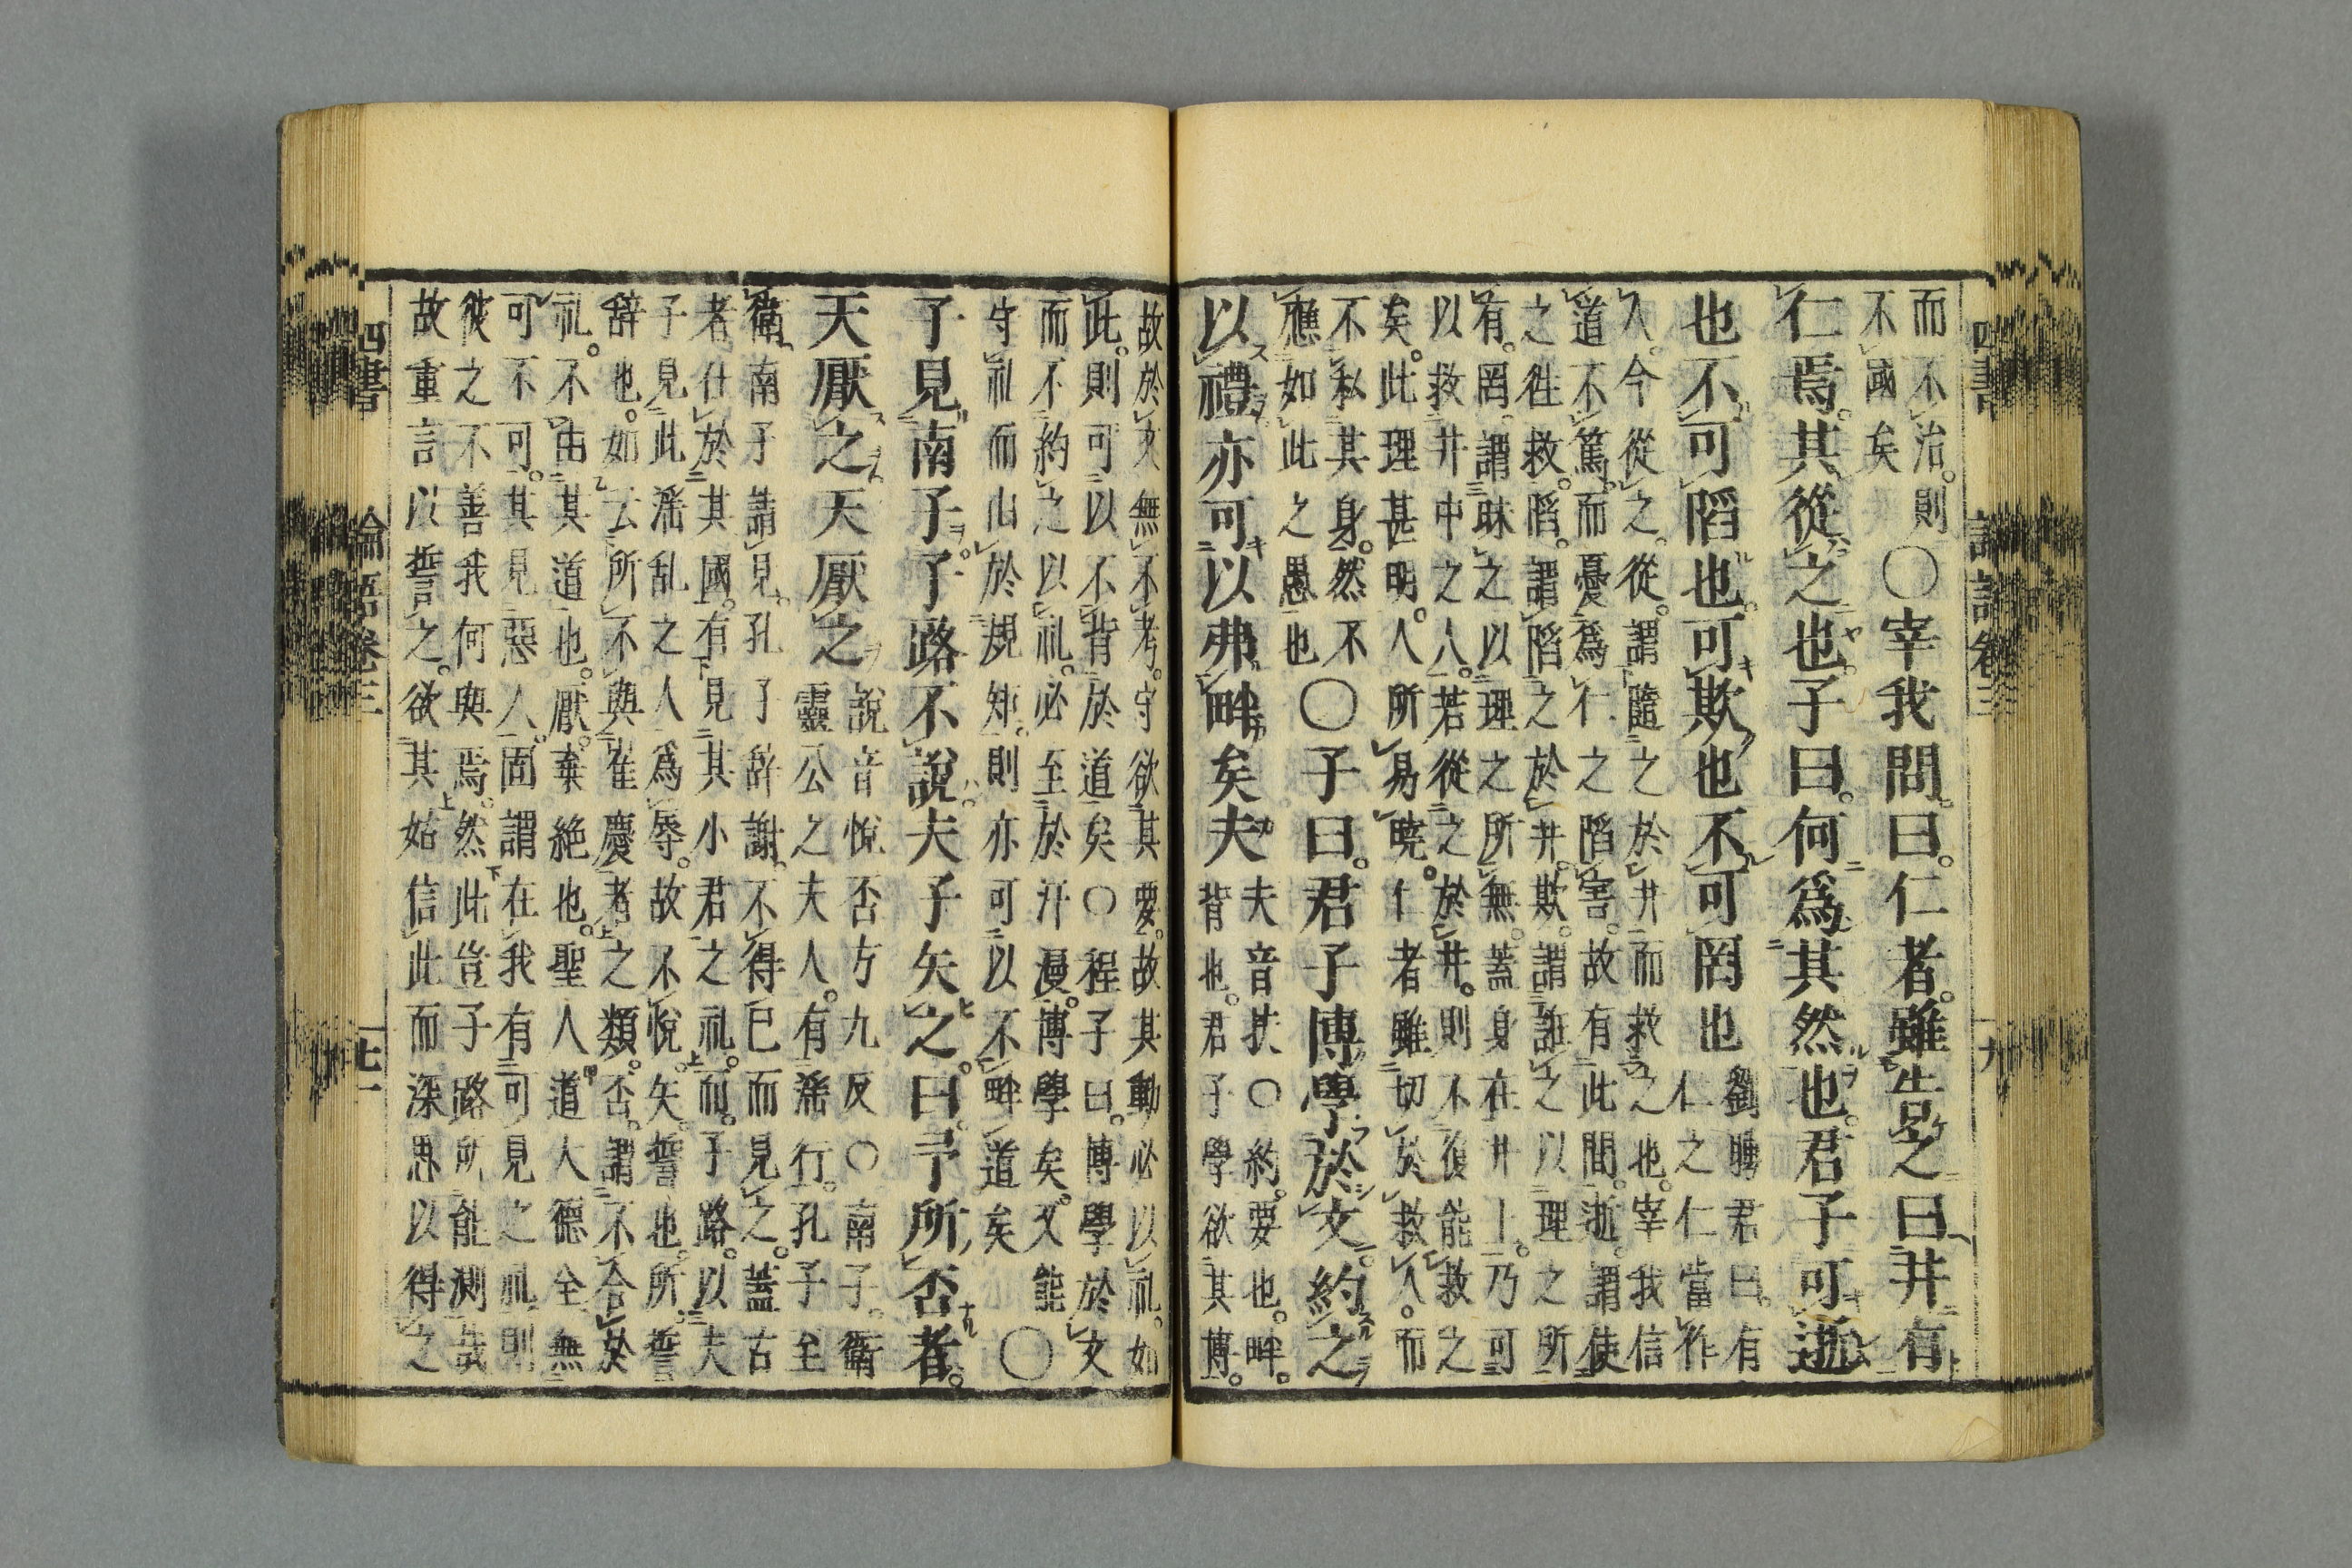 而不治。則
不國矣
○宰我問。曰。仁者。雖告之曰井有
仁焉。其從之也。子曰。何爲其然也。君子可逝
也不可陷也。可欺也不可罔也
劉聘君曰。有
仁之仁當作
人。今從之。從。謂隨之於井而救之也。宰我信
道不篤。而憂爲仁之陷害。故有此問。逝。謂使
之徃救。陷。謂陷之於井。欺。謂誑之以理之所
有。罔。謂昧之以理之所無。蓋身在井上。乃可
以救井中之人。若從之於井。則不復能救之
矣。此理甚明。人所易曉。仁者雖切於救人。而
不私其身。然不
應如此之愚也
○子曰。君子博學於文。約之
以禮亦可以弗畔矣夫
夫音扶○約。要也。畔。
背也。君子學欲其博。
故於文無不考。守欲其要。故其動必以礼。如
此。則可以不背於道矣○程子曰。博學於文
而不約之以礼。必至於汗漫。博學矣。又能
守礼而由於規矩。則亦可以不畔道矣
○
子見南子。子路不說。夫子矢之。曰。予所否者。
天厭之天厭之
說音悅否方九反○南子。衛
靈公之夫人。有滛行。孔子至
衛。南子請見。孔子辭謝。不得已而見之。蓋古
者仕於其國。有見其小君之礼。而。子路。以夫
子見此滛乱之人爲辱。故不悅。矢。誓也。所。誓
辞也。如云所不與崔慶者之類。否。謂不合於
礼。不由其道也。厭。棄絶也。聖人道大德全。無
可不可。其見惡人。固謂在我有可見之礼。則
彼之不善我何與焉。然此豈子路所能測哉
故重言以誓之。欲其姑信此而深思以得之
四書 論語卷三